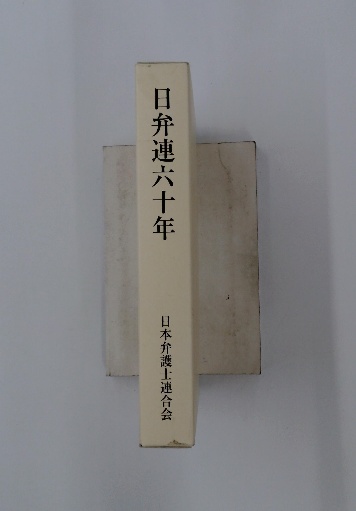 日弁連六十年
日本弁護士連合会